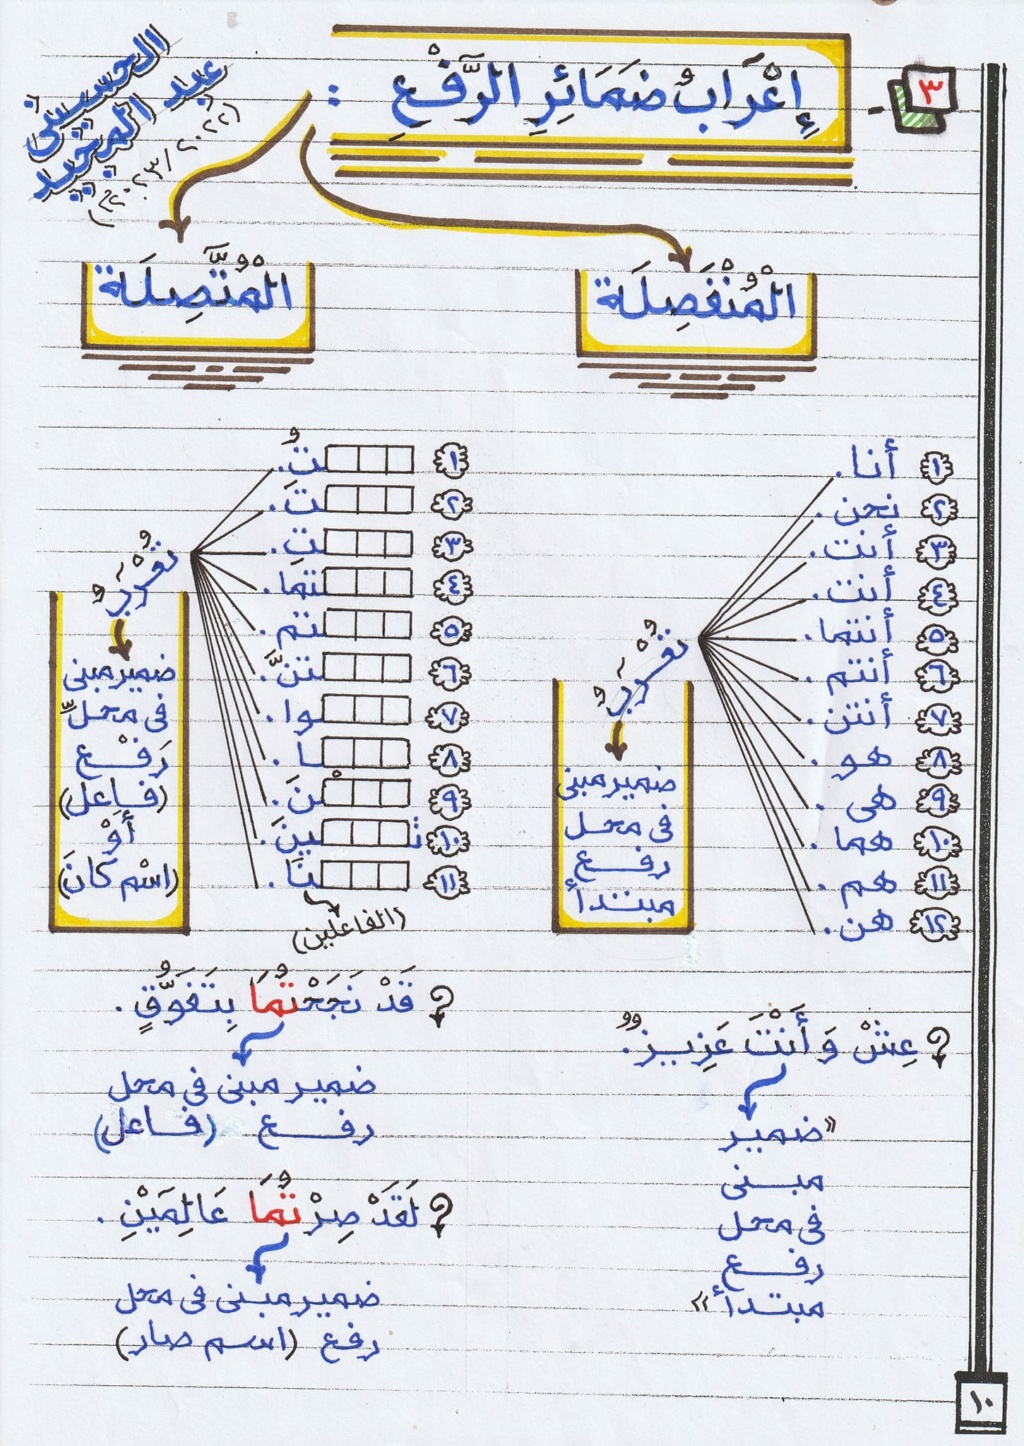 ٣
إِعْرَابُ ضَمَائِرِ الرَّفْعِ :
الحسينى
عبد المجيد
(٢٠٢٣/٢٠٢٢م)
الْمُنْفَصِلَة
١ أنا.
٢ نحن.
٣ أنتَ.
٤ أنتِ.
٥ أنتما.
٦ أنتم.
٧ أنتن.
٨ هو.
٩ هى.
١٠ هما.
١١ هم.
١٢ هن.
تُعْرَبُ
ضمير مبنى
فى محل
رفع
مبتدأ
؟ عِشْ وَ أَنْتَ عَزِيزٌ.
"ضمير
مبنى
فى محل
رفع
مبتدأ"
الْمُتَّصِلَة
١ ـتُ.
٢ ـتَ.
٣ ـتِ.
٤ ـتما.
٥ ـتم.
٦ ـتنَّ.
٧ ـوا.
٨ ـا.
٩ ـْنَ.
١٠ تـ ـينَ.
١١ ـنَا.
(الفاعلين)
تُعْرَبُ
ضمير مبنى
فى محلِّ
رَفْع
(فاعل)
أَوْ
(اسْم كَانَ)
؟ قَدْ نَجَحْتُمَا بِتَفَوُّقٍ.
ضمير مبنى فى محل
رفع (فاعل)
؟ لَقَدْ صِرْتُمَا عَالِمَيْنِ.
ضمير مبنى فى محل
رفع (اسم صار)
١٠